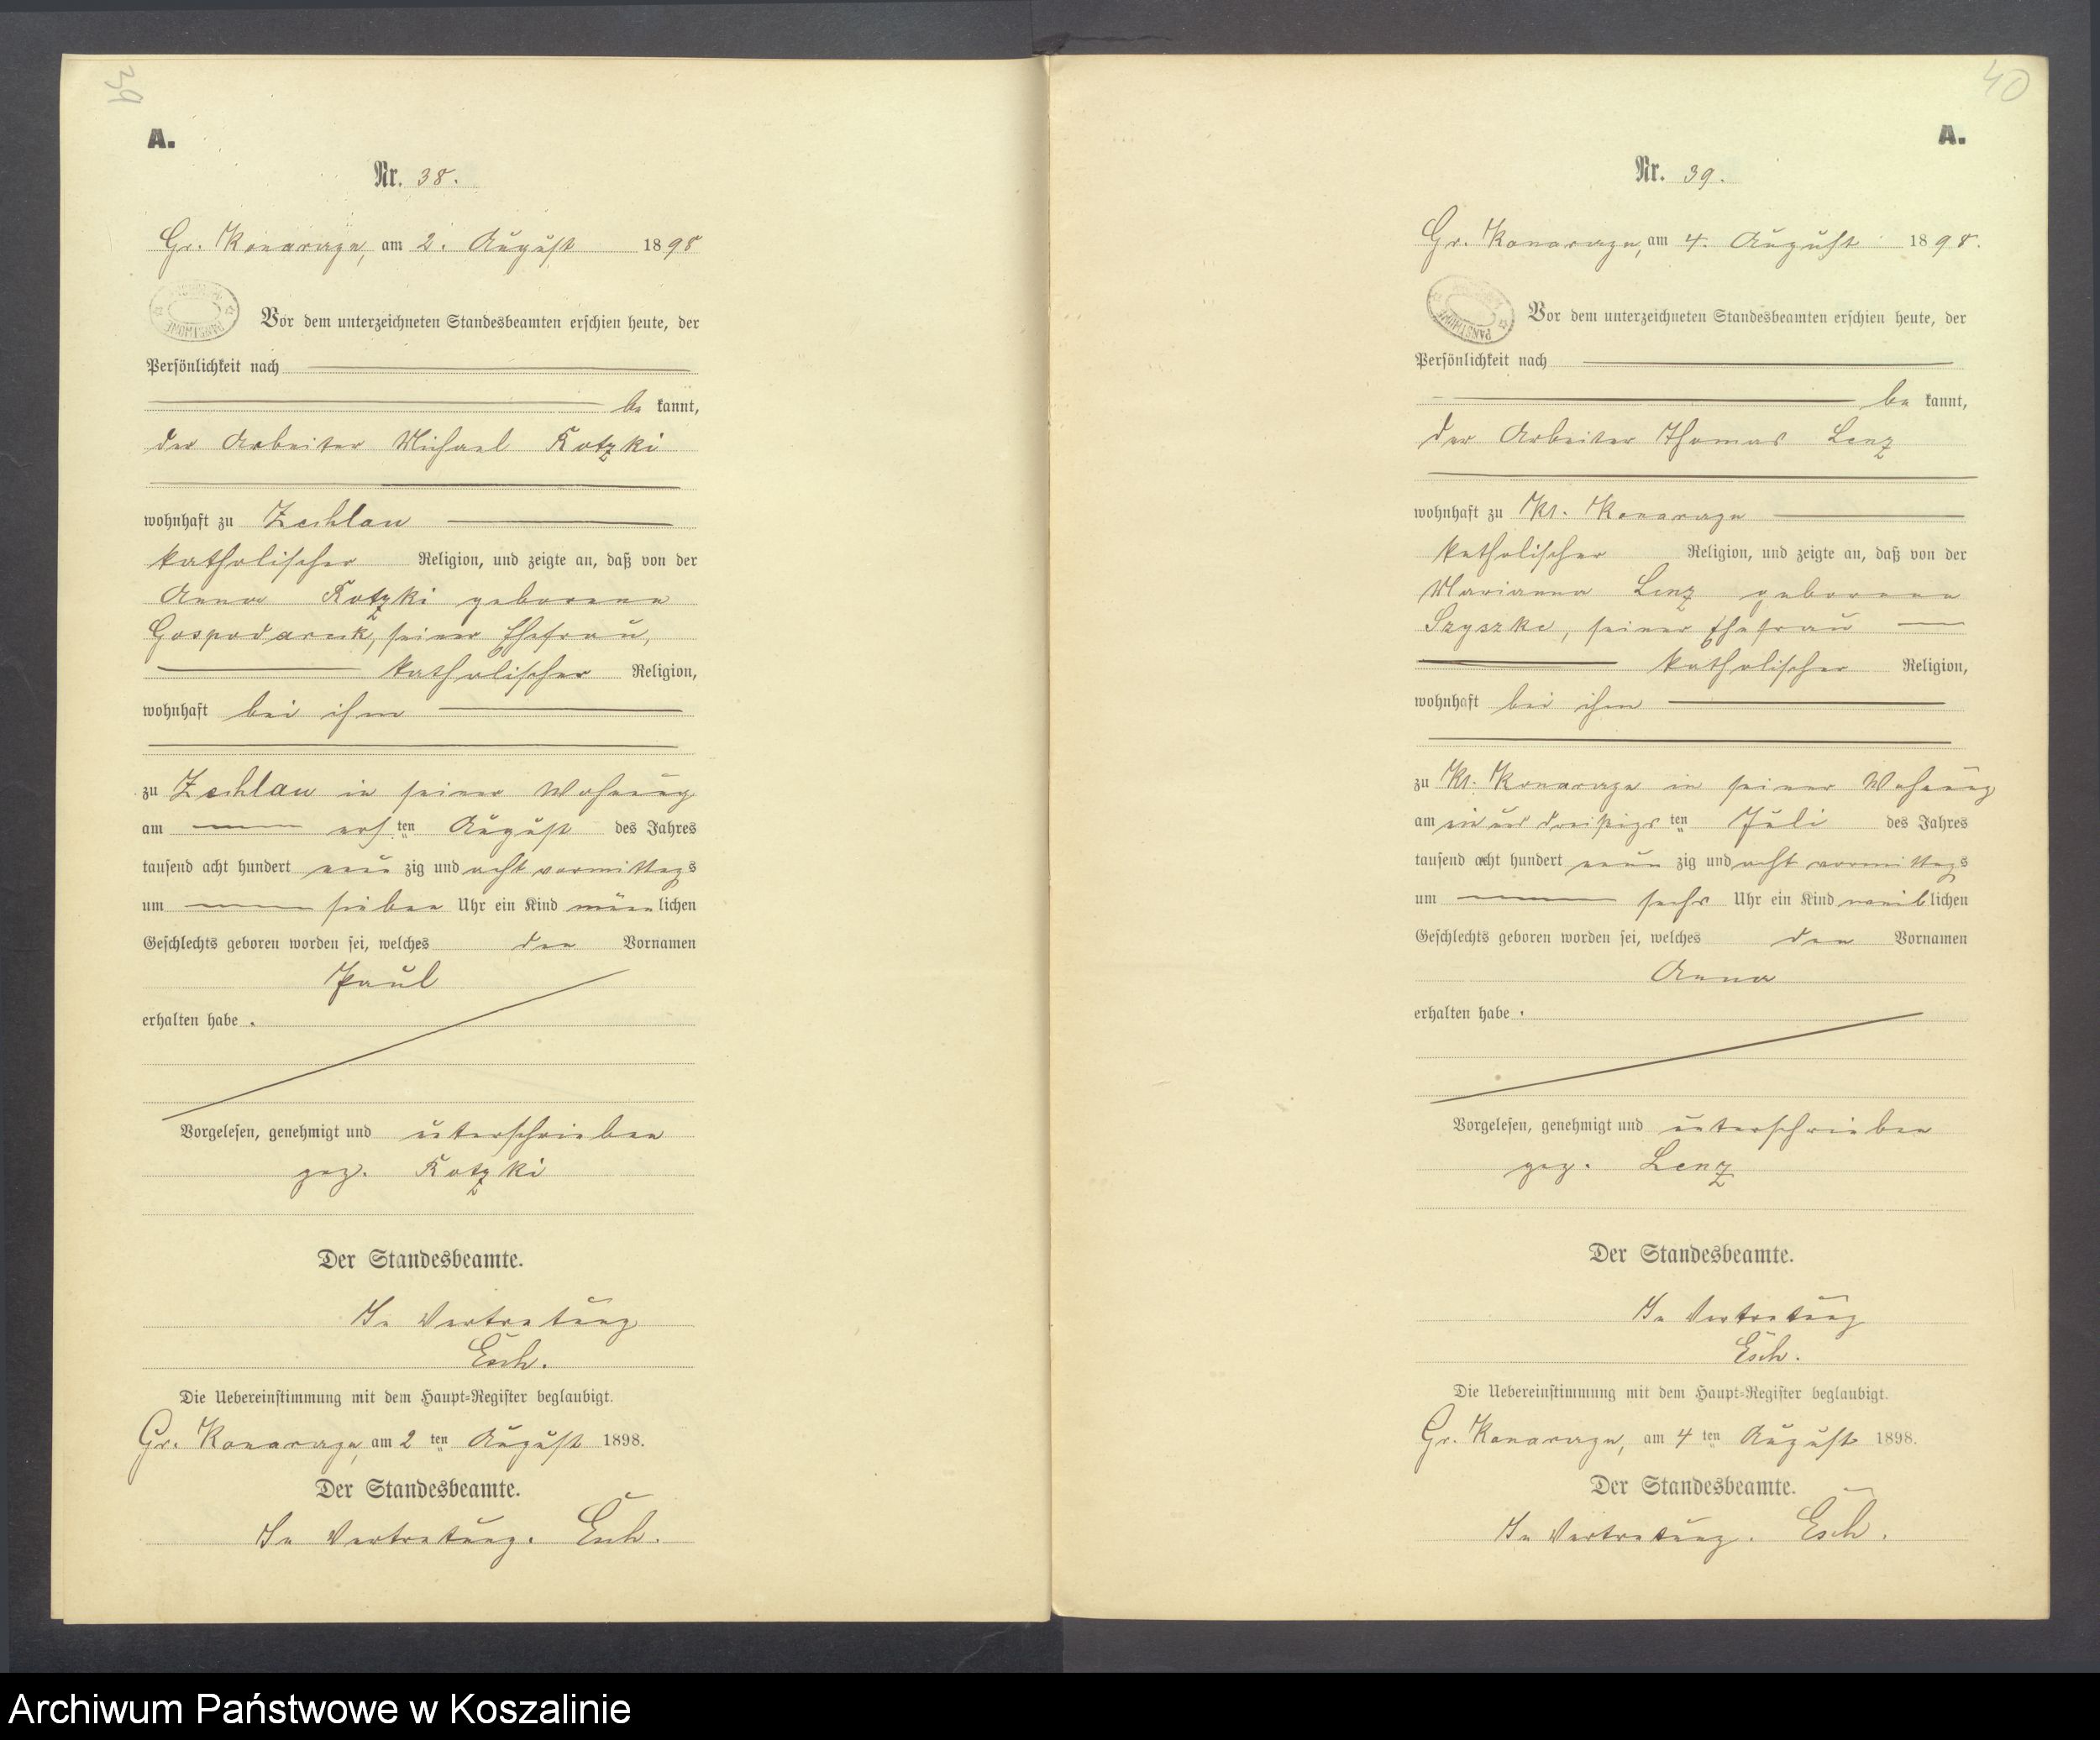 39
A.
Nr. 38.
Gr. Konarzyn, am 2. August 1898
Vor dem unterzeichneten Standesbeamten erschien heute, der
Persönlichkeit nach
be kannt,
der Arbeiter Michael Kotzki
wohnhaft zu Zechlau
katholischer Religion, und zeigte an, daß von der
Anna Kotzki geborene
Gospodarek, seiner Ehefrau,
katholischer Religion,
wohnhaft bei ihm
zu Zechlau in seiner Wohnung
am ersten August des Jahres
tausend acht hundert neun zig und acht vormittags
um sieben Uhr ein Kind männlichen
Geschlechts geboren worden sei, welches den Vornamen
Paul
erhalten habe.
Vorgelesen, genehmigt und unterschrieben
gez. Kotzki
Der Standesbeamte.
In Vertretung
Esch.
Die Uebereinstimmung mit dem Haupt-Register beglaubigt.
Gr. Konarzyn, am 2ten August 1898.
Der Standesbeamte.
In Vertretung. Esch.
40
A.
Nr. 39.
Gr. Konarzyn, am 4. August 1898.
Vor dem unterzeichneten Standesbeamten erschien heute, der
Persönlichkeit nach
be kannt,
der Arbeiter Thomas Lenz
wohnhaft zu Kl. Konarzyn
katholischer Religion, und zeigte an, daß von der
Marianna Lenz geborene
Szyszke, seiner Ehefrau
katholischer Religion,
wohnhaft bei ihm
zu Kl. Konarzyn in seiner Wohnung
am einunddreißigsten Juli des Jahres
tausend acht hundert neun zig und acht vormittags
um sechs Uhr ein Kind weiblichen
Geschlechts geboren worden sei, welches den Vornamen
Anna
erhalten habe.
Vorgelesen, genehmigt und unterschrieben
gez. Lenz
Der Standesbeamte.
In Vertretung
Esch.
Die Uebereinstimmung mit dem Haupt-Register beglaubigt.
Gr. Konarzyn, am 4ten August 1898.
Der Standesbeamte.
In Vertretung. Esch.
Archiwum Państwowe w Koszalinie